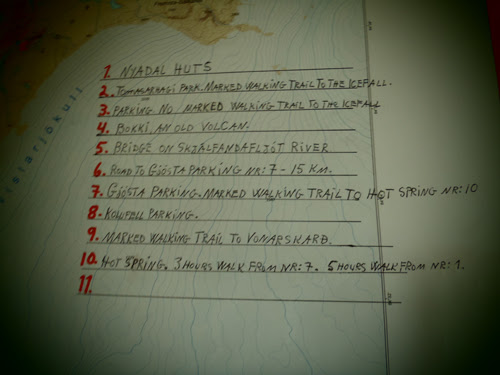 1. NYADAL HUTS
2. TOMMASARHAGI PARK. MARKED WALKING TRAIL TO THE ICEFALL.
3. PARKING NO/MARKED WALKING TRAIL TO THE ICEFALL
4. BOKKI AN OLD VOLCAN.
5. BRIDGE ON SKJÁLFANDAFLJÓT RIVER
6. ROAD TO GJÓSTA PARKING NR: 7 - 15 KM.
7. GJÓSTA PARKING. MARKED WALKING TRAIL TO HOT SPRING NR: 10
8. PARKING.
9. MARKED WALKING TRAIL TO VONARSKARÐ.
10. HOT SPRING. 3 HOURS WALK FROM NR: 7. 5 HOURS WALK FROM NR: 1.
11.